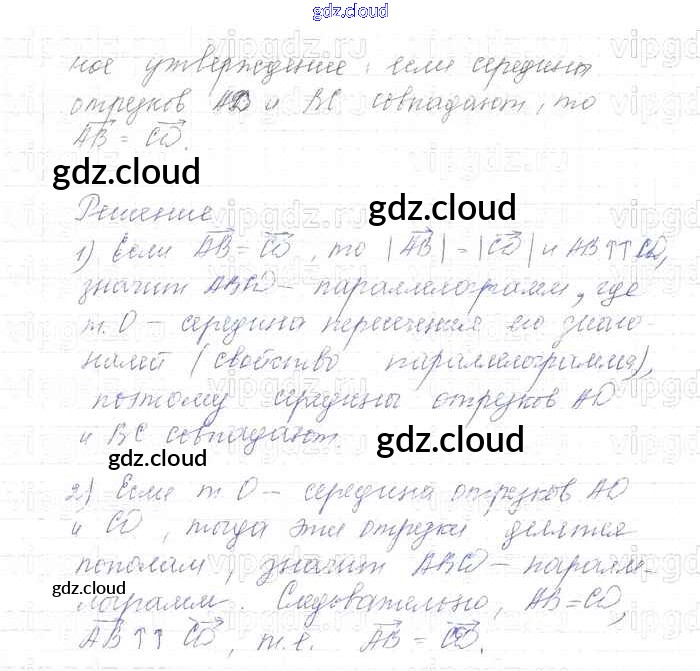 gdz.cloud
ное утверждение: если середины
отрезков AD и BC совпадают, то
AB = CD.
gdz.cloud
gdz.cloud
Решение
1) Если AB = CD, то |AB| = |CD| и AB↑↑CD,
значит ABCD – параллелограмм, где
т. O – середина пересечения его диаго-
налей (свойство параллелограмма),
поэтому середины отрезков AD
и BC совпадают.
gdz.cloud
gdz.cloud
2) Если т. O – середина отрезков AD
и CD, тогда эти отрезки делятся
пополам, значит ABCD – паралле-
gdz.cloud
лограмм. Следовательно, AB = CD,
AB ↑↑ CD, т.е. AB = CD.
gdz.cloud